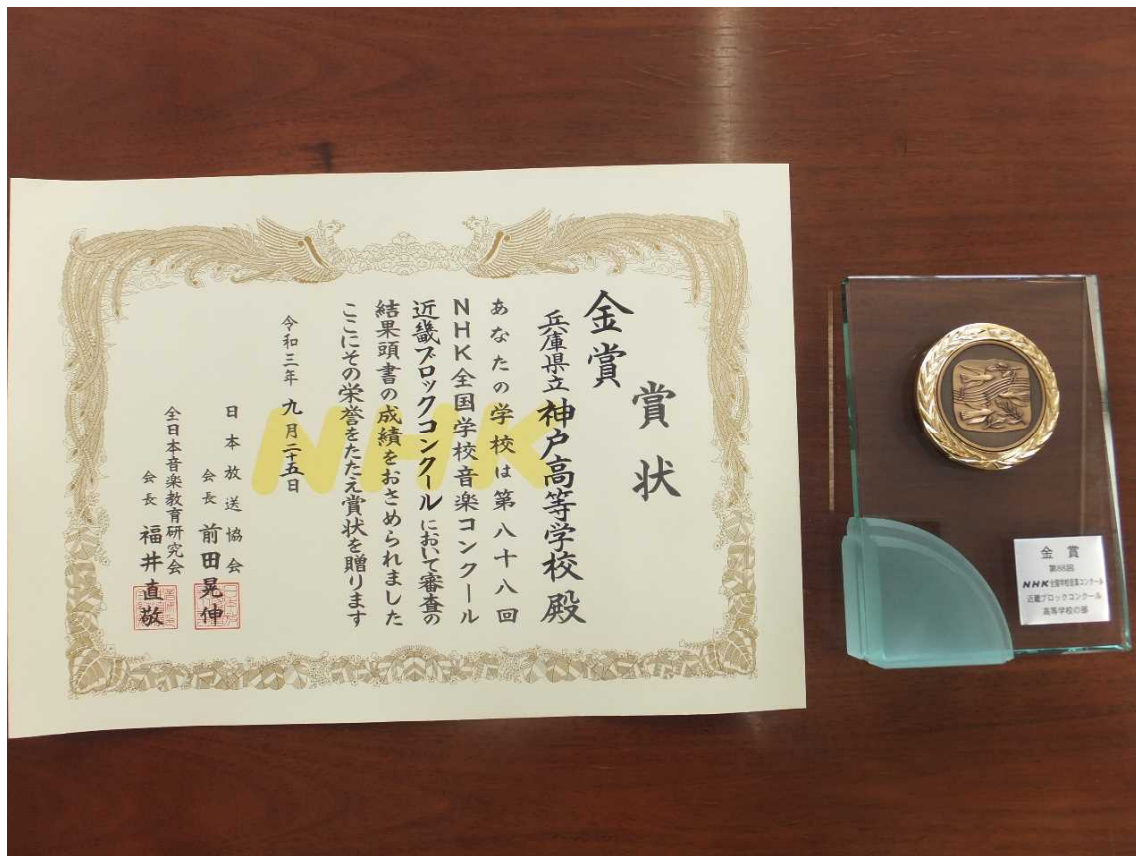 賞状
金賞
兵庫県立神戸高等学校殿
あなたの学校は第八十八回
NHK全国学校音楽コンクール
近畿ブロックコンクールにおいて審査の
結果頭書の成績をおさめられました
ここにその栄誉をたたえ賞状を贈ります
令和三年 九月二十五日
日本放送協会
会長 前田晃伸
全日本音楽教育研究会
会長 福井直敬
NHK
金賞
第88回
NHK全国学校音楽コンクール
近畿ブロックコンクール
高等学校の部